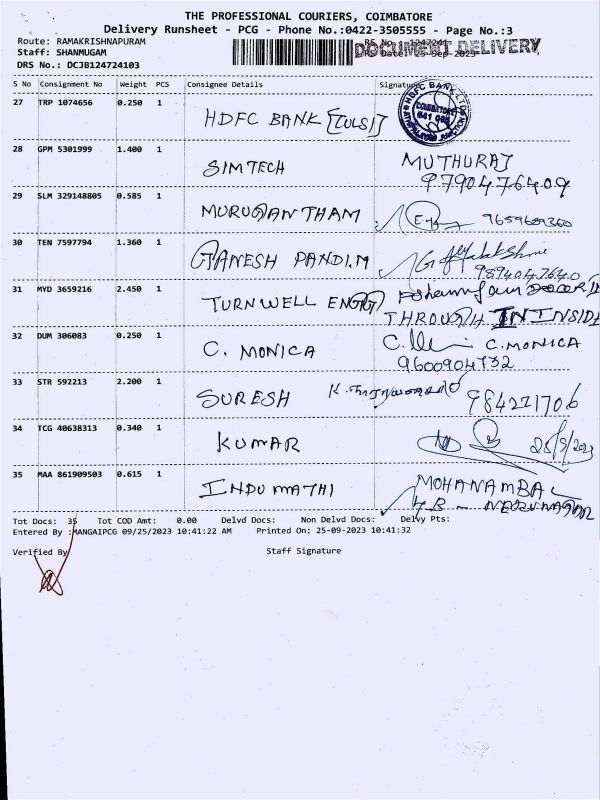 THE PROFESSIONAL COURIERS, COIMBATORE
Delivery Runsheet - PCG - Phone No.:0422-3505555 - Page No.:3
Route: RAMAKRISHNAPURAM
Staff: SHANMUGAM
DOCUMENT DELIVERY
DRS Date: 25-Sep-2023
DRS No.: DCJB124724103
S No Consignment No Weight PCS Consignee Details Signature
27 TRP 1074656 0.250 1 HDFC BANK [TULSI] HDFC BANK LTD COIMBATORE 641 002
28 GPM 5301999 1.400 1 SIMTECH MUTHURAJ
9790476409
29 SLM 329148805 0.585 1 MURUGANTHAM 9659689360
30 TEN 7597794 1.360 1 GANESH PANDI.M
9894047640
31 MYD 3659216 2.450 1 TURNWELL ENGG
THROUGH IN INSIDE
32 DUM 306083 0.250 1 C. MONICA C. MONICA
9600904732
33 STR 592213 2.200 1 SURESH 984221706
34 TCG 40638313 0.340 1 KUMAR 25/9/2023
35 MAA 861909503 0.615 1 INDUMATHI MOHANAMBAL
4B - NEHRUNAGAR
Tot Docs: 35 Tot COD Amt: 0.00 Delvd Docs: Non Delvd Docs: Delvy Pts:
Entered By :MANGAIPCG 09/25/2023 10:41:22 AM Printed On: 25-09-2023 10:41:32
Verified By Staff Signature